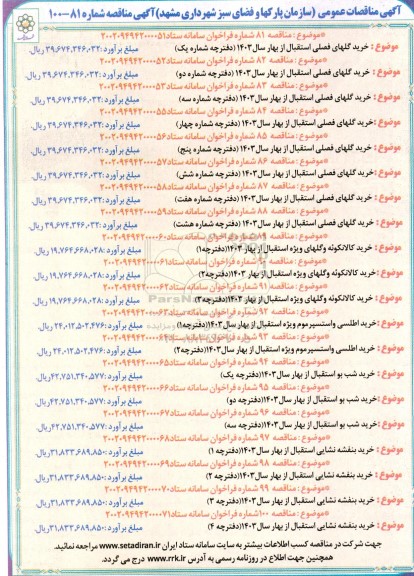 آگهی مناقصات عمومی (سازمان پارکها و فضای سبز شهرداری مشهد) آگهی مناقصه شماره ۸۱-۱۰۰
*موضوع: مناقصه ۸۱ شماره فراخوان سامانه ستاد ۲۰۰۲۰۹۴۹۴۲۰۰۰۰۵۱
موضوع: خرید گلهای فصلی استقبال از بهار سال ۱۴۰۳ (دفترچه شماره یک) مبلغ برآورد: ۳۹،۶۷۴،۳۴۶،۰۳۲ ریال.
*موضوع: مناقصه ۸۲ شماره فراخوان سامانه ستاد ۲۰۰۲۰۹۴۹۴۲۰۰۰۰۵۲
موضوع: خرید گلهای فصلی استقبال از بهار سال ۱۴۰۳ (دفترچه شماره دو) مبلغ برآورد: ۳۹،۶۷۴،۳۴۶،۰۳۲ ریال.
*موضوع: مناقصه ۸۳ شماره فراخوان سامانه ستاد ۲۰۰۲۰۹۴۹۴۲۰۰۰۰۵۳
موضوع: خرید گلهای فصلی استقبال از بهار سال ۱۴۰۳ (دفترچه شماره سه) مبلغ برآورد: ۳۹،۶۷۴،۳۴۶،۰۳۲ ریال.
*موضوع: مناقصه ۸۴ شماره فراخوان سامانه ستاد ۲۰۰۲۰۹۴۹۴۲۰۰۰۰۵۵
موضوع: خرید گلهای فصلی استقبال از بهار سال ۱۴۰۳ (دفترچه شماره چهار) مبلغ برآورد: ۳۹،۶۷۴،۳۴۶،۰۳۲ ریال.
*موضوع: مناقصه ۸۵ شماره فراخوان سامانه ستاد ۲۰۰۲۰۹۴۹۴۲۰۰۰۰۵۶
موضوع: خرید گلهای فصلی استقبال از بهار سال ۱۴۰۳ (دفترچه شماره پنج) مبلغ برآورد: ۳۹،۶۷۴،۳۴۶،۰۳۲ ریال.
*موضوع: مناقصه ۸۶ شماره فراخوان سامانه ستاد ۲۰۰۲۰۹۴۹۴۲۰۰۰۰۵۷
موضوع: خرید گلهای فصلی استقبال از بهار سال ۱۴۰۳ (دفترچه شماره شش) مبلغ برآورد: ۳۹،۶۷۴،۳۴۶،۰۳۲ ریال.
*موضوع: مناقصه ۸۷ شماره فراخوان سامانه ستاد ۲۰۰۲۰۹۴۹۴۲۰۰۰۰۵۸
موضوع: خرید گلهای فصلی استقبال از بهار سال ۱۴۰۳ (دفترچه شماره هفت) مبلغ برآورد: ۳۹،۶۷۴،۳۴۶،۰۳۲ ریال.
*موضوع: مناقصه ۸۸ شماره فراخوان سامانه ستاد ۲۰۰۲۰۹۴۹۴۲۰۰۰۰۵۹
موضوع: خرید گلهای فصلی استقبال از بهار سال ۱۴۰۳ (دفترچه شماره هشت) مبلغ برآورد: ۳۹،۶۷۴،۳۴۶،۰۳۲ ریال.
*موضوع: مناقصه ۸۹ شماره فراخوان سامانه ستاد ۲۰۰۲۰۹۴۹۴۲۰۰۰۰۶۰
موضوع: خرید کالانکوئه وگلهای ویژه استقبال از بهار ۱۴۰۳ (دفترچه۱) مبلغ برآورد: ۱۹،۷۶۴،۶۶۸،۰۲۸ ریال.
*موضوع: مناقصه ۹۰ شماره فراخوان سامانه ستاد ۲۰۰۲۰۹۴۹۴۲۰۰۰۰۶۱
موضوع: خرید کالانکوئه وگلهای ویژه استقبال از بهار ۱۴۰۳ (دفترچه۲) مبلغ برآورد: ۱۹،۷۶۴،۶۶۸،۰۲۸ ریال.
*موضوع: مناقصه ۹۱ شماره فراخوان سامانه ستاد ۲۰۰۲۰۹۴۹۴۲۰۰۰۰۶۲
موضوع: خرید کالانکوئه وگلهای ویژه استقبال از بهار ۱۴۰۳ (دفترچه۳) مبلغ برآورد: ۱۹،۷۶۴،۶۶۸،۰۲۸ ریال.
*موضوع: مناقصه ۹۲ شماره فراخوان سامانه ستاد ۲۰۰۲۰۹۴۹۴۲۰۰۰۰۶۳
موضوع: خرید اطلسی واستسپرموم ویژه استقبال از بهار سال ۱۴۰۳ (دفترچه۱) مبلغ برآورد: ۲۴،۰۱۲،۵۰۲،۴۷۶ ریال.
*موضوع: مناقصه ۹۳ شماره فراخوان سامانه ستاد ۲۰۰۲۰۹۴۹۴۲۰۰۰۰۶۴
موضوع: خرید اطلسی واستسپرموم ویژه استقبال از بهار سال ۱۴۰۳ (دفترچه۲) مبلغ برآورد: ۲۴،۰۱۲،۵۰۲،۴۷۶ ریال.
*موضوع: مناقصه ۹۴ شماره فراخوان سامانه ستاد ۲۰۰۲۰۹۴۹۴۲۰۰۰۰۶۵
موضوع: خرید شب بو استقبال از بهار سال ۱۴۰۳ (دفترچه یک) مبلغ برآورد: ۴۲،۷۵۱،۳۴۰،۵۷۷ ریال.
*موضوع: مناقصه ۹۵ شماره فراخوان سامانه ستاد ۲۰۰۲۰۹۴۹۴۲۰۰۰۰۶۶
موضوع: خرید شب بو استقبال از بهار سال ۱۴۰۳ (دفترچه دو) مبلغ برآورد: ۴۲،۷۵۱،۳۴۰،۵۷۷ ریال.
*موضوع: مناقصه ۹۶ شماره فراخوان سامانه ستاد ۲۰۰۲۰۹۴۹۴۲۰۰۰۰۶۷
موضوع: خرید شب بو استقبال از بهار سال ۱۴۰۳ (دفترچه سه) مبلغ برآورد: ۴۲،۷۵۱،۳۴۰،۵۷۷ ریال.
*موضوع: مناقصه ۹۷ شماره فراخوان سامانه ستاد ۲۰۰۲۰۹۴۹۴۲۰۰۰۰۶۸
موضوع: خرید بنفشه نشایی استقبال از بهار سال ۱۴۰۳ (دفترچه ۱) مبلغ برآورد: ۳۱،۸۳۳،۶۸۹،۸۵۰ ریال.
*موضوع: مناقصه ۹۸ شماره فراخوان سامانه ستاد ۲۰۰۲۰۹۴۹۴۲۰۰۰۰۶۹
موضوع: خرید بنفشه نشایی استقبال از بهار سال ۱۴۰۳ (دفترچه ۲) مبلغ برآورد: ۳۱،۸۳۳،۶۸۹،۸۵۰ ریال.
*موضوع: مناقصه ۹۹ شماره فراخوان سامانه ستاد ۲۰۰۲۰۹۴۹۴۲۰۰۰۰۷۰
موضوع: خرید بنفشه نشایی استقبال از بهار سال ۱۴۰۳ (دفترچه ۳) مبلغ برآورد: ۳۱،۸۳۳،۶۸۹،۸۵۰ ریال.
*موضوع: مناقصه ۱۰۰ شماره فراخوان سامانه ستاد ۲۰۰۲۰۹۴۹۴۲۰۰۰۰۷۱
موضوع: خرید بنفشه نشایی استقبال از بهار سال ۱۴۰۳ (دفترچه ۴) مبلغ برآورد: ۳۱،۸۳۳،۶۸۹،۸۵۰ ریال.
جهت شرکت در مناقصه کسب اطلاعات بیشتر به سایت سامانه ستاد ایران www.setadiran.ir مراجعه نمائید.
همچنین جهت اطلاع در روزنامه رسمی به آدرس www.rrk.ir درج می گردد.